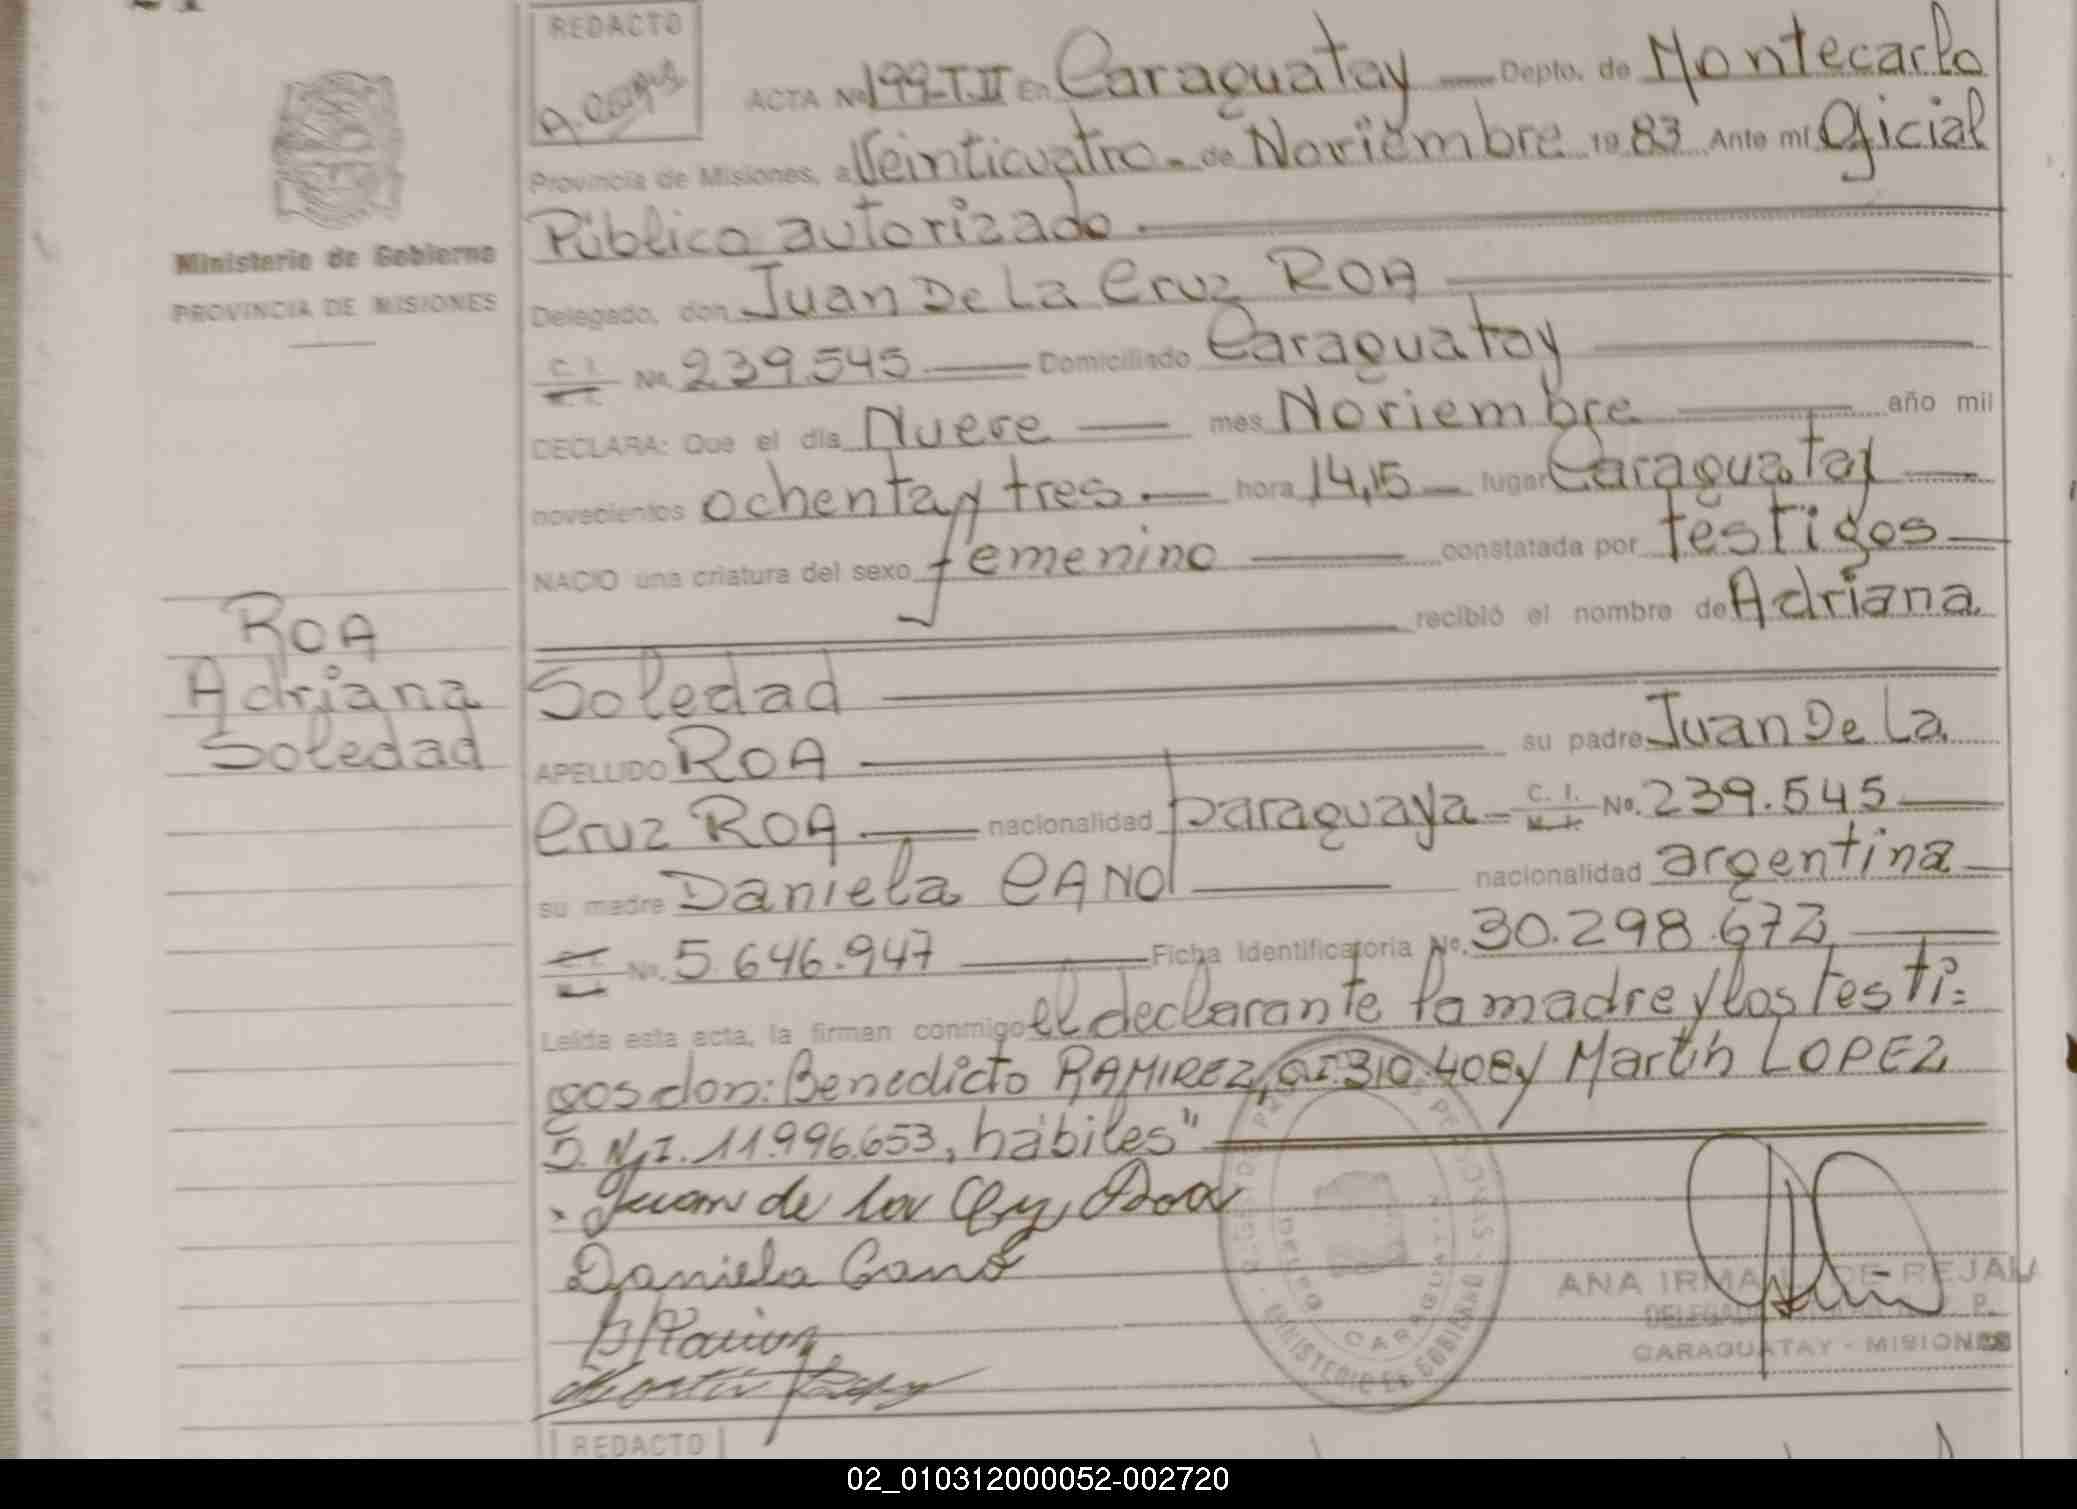 REDACTO
ACTA Nº 199-T.II En Caraguatay Depto. de Montecarlo
Provincia de Misiones, a Veinticuatro de Noviembre 19 83 Ante mí Oficial
Público autorizado
Ministerio de Gobierno
PROVINCIA DE MISIONES
Delegado, don Juan De La Cruz ROA
C. I. No. 239.545 Domiciliado Caraguatay
DECLARA: Que el día Nueve mes Noviembre año mil
novecientos ochenta y tres hora 14,15 lugar Caraguatay
NACIO una criatura del sexo femenino constatada por testigos
recibió el nombre de Adriana
Soledad
ROA
Adriana
Soledad
APELLIDO ROA su padre Juan De La
Cruz ROA nacionalidad paraguaya C. I. No. 239.545
su madre Daniela CANO nacionalidad argentina
No. 5.646.947 Ficha Identificatoria No. 30.298.672
Leída esta acta, la firman conmigo el declarante la madre y los testi=
gos don: Benedicto RAMIREZ, CI 310.408 y Martín LOPEZ
D.N.I. 11.996.653, hábiles"
Juan de la Cruz Roa
Daniela Cano
ANA IRMA DE REJALA
CARAGUATAY - MISIONES
MINISTERIO DE GOBIERNO
CARAGUATAY
REDACTO
02_010312000052-002720